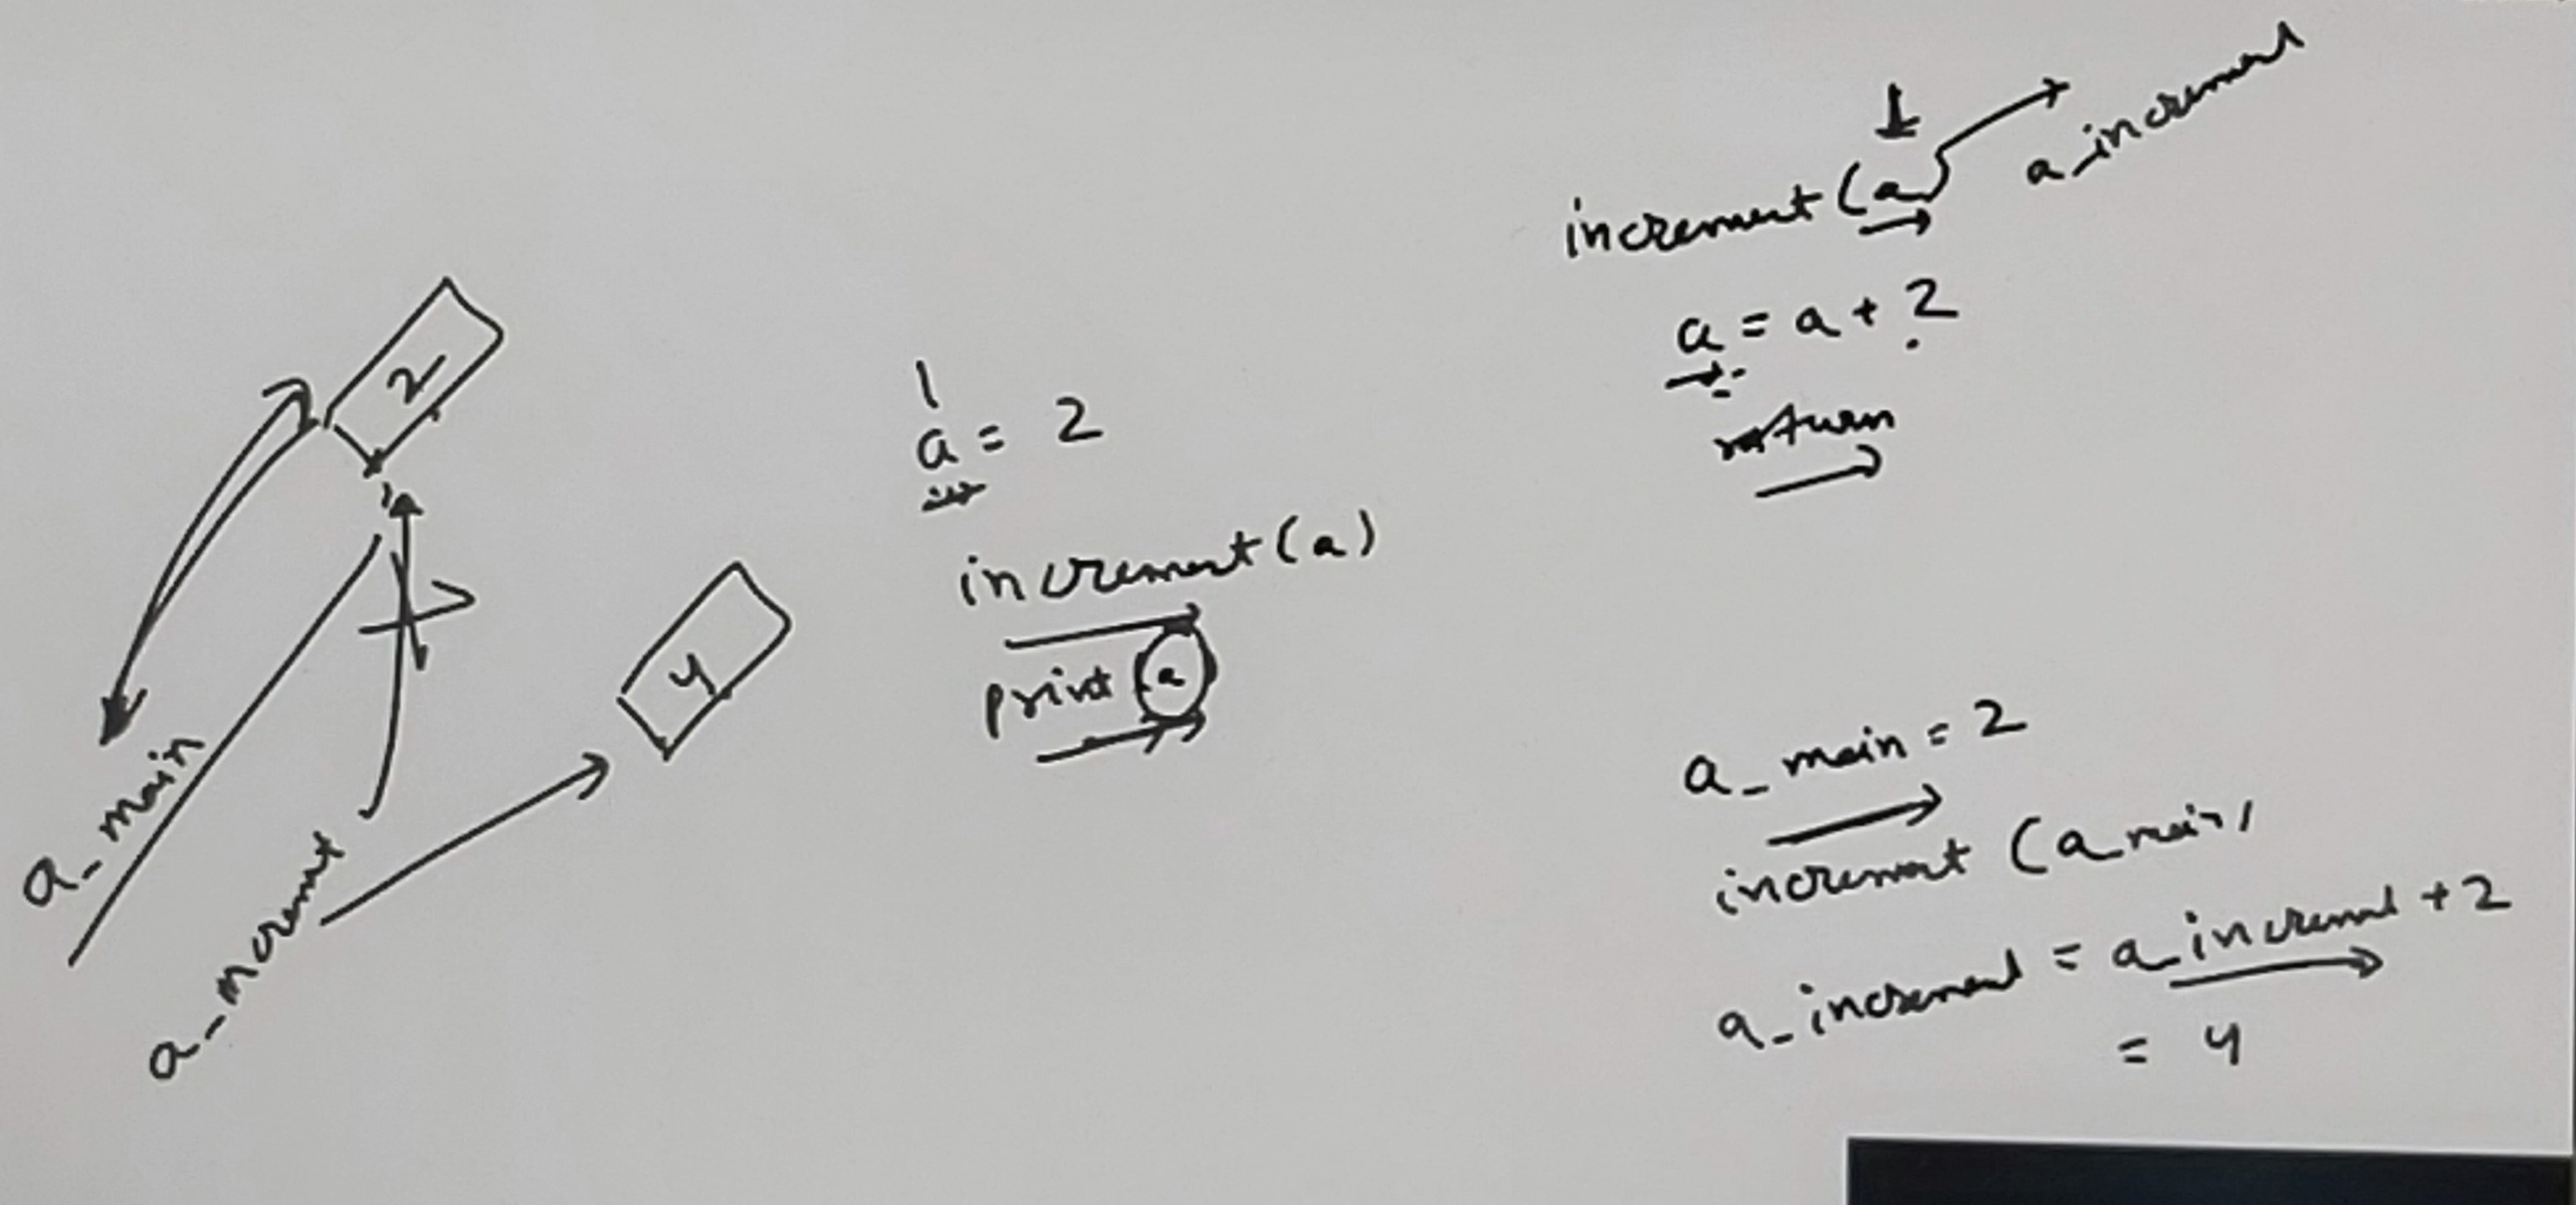 2
a_main
a_increment
4
a = 2
increment(a)
print(a)
increment(a)
a_increment
a = a + 2
return
a_main = 2
increment (a_main)
a_increment = a_increment + 2
= 4